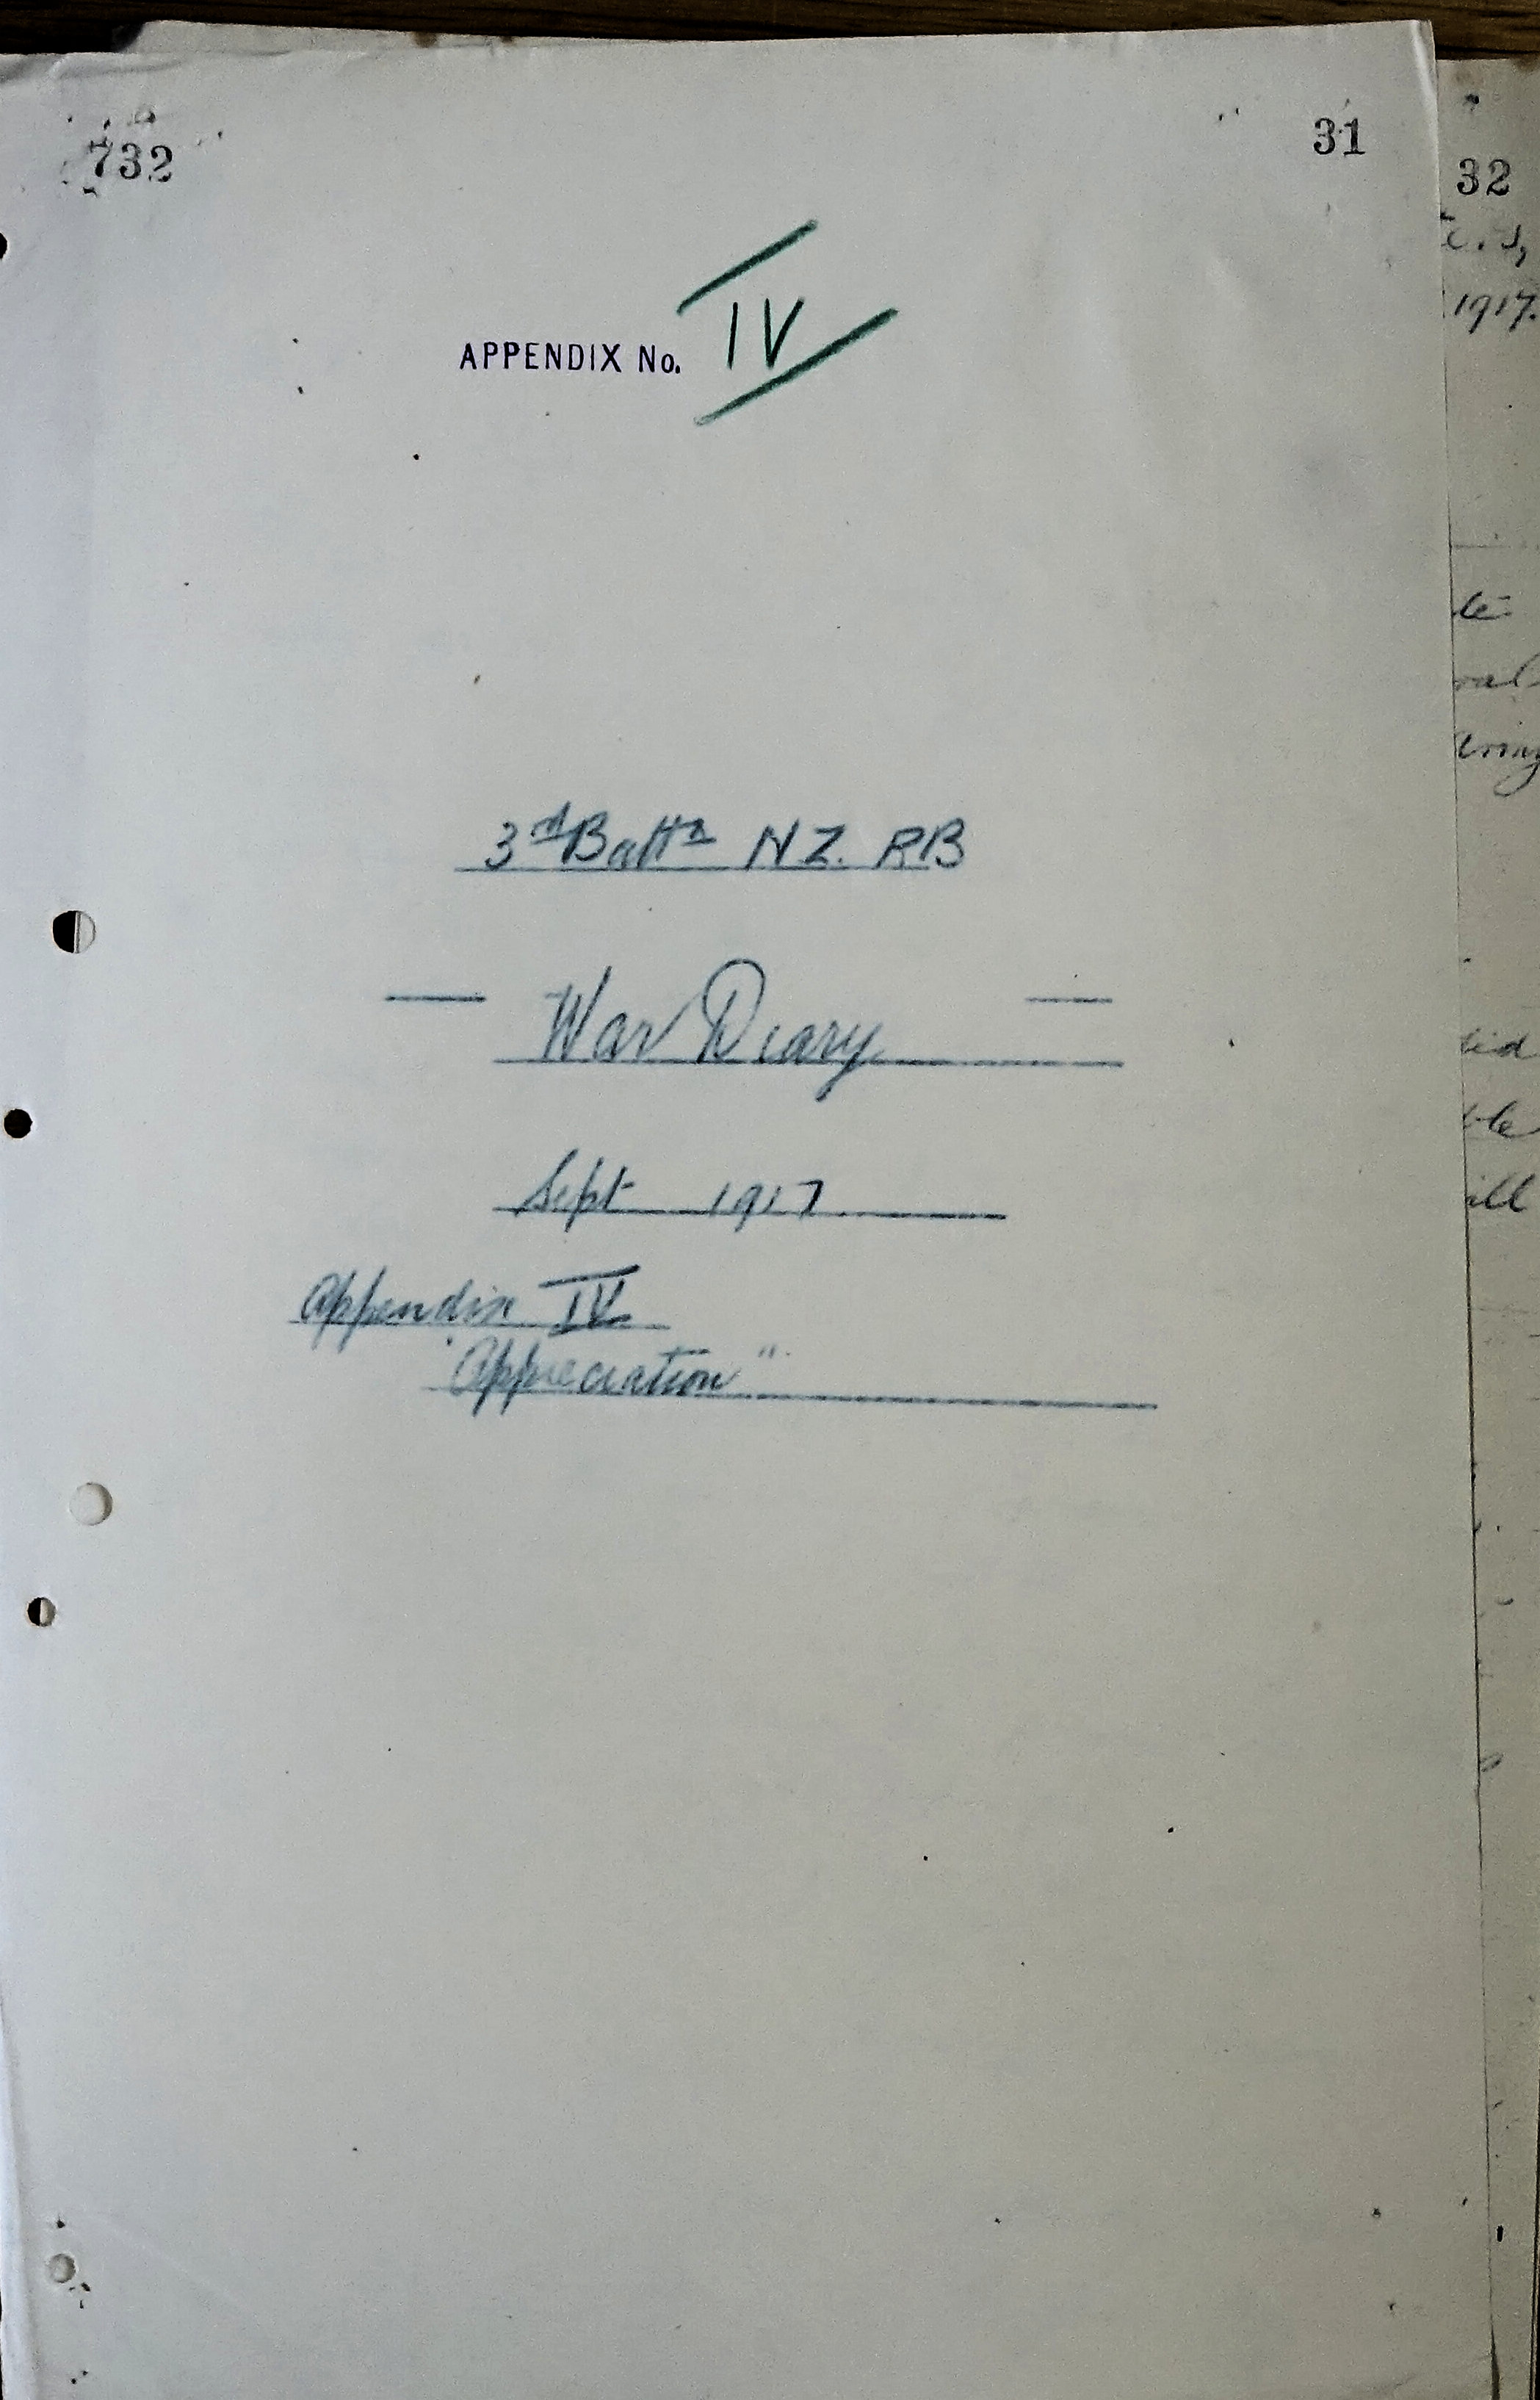 732
31
APPENDIX No. IV
3rd Battn NZ. RB
War Diary
Sept 1917
Appendix IV
"Appreciation"
32
1917.
ill